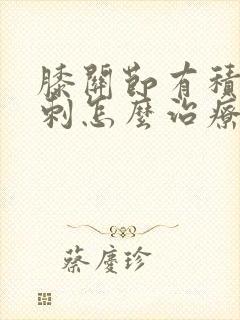 膝關節有積
刺怎麼治療
蔡慶珍